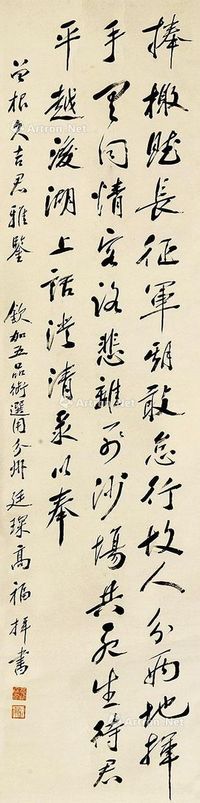 捧檄賦長征軍期敢怠行故人分兩地揮
手里同情客路悲離別沙場共死生待君
平越後湖上話澄清泉以奉
曾根夫吉君雅鑒 欽加五品銜選用分州 廷琛高福
書
Artron.Net